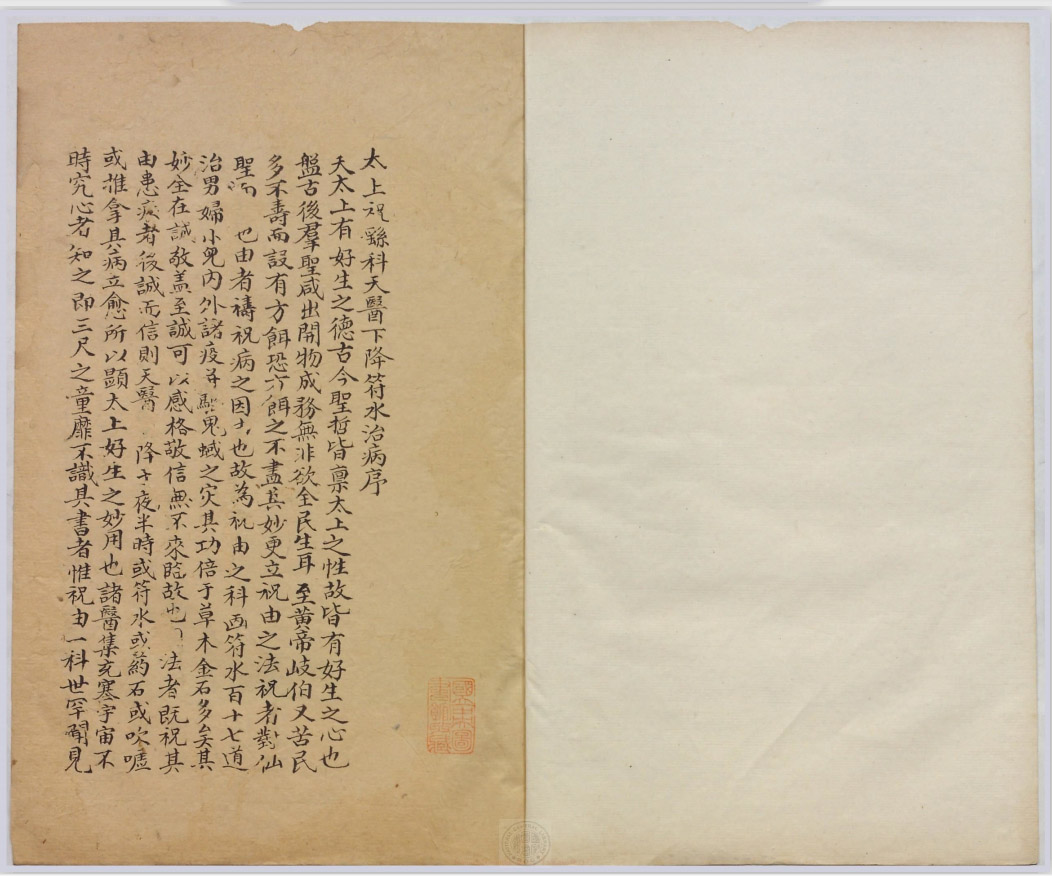 太上祝繇科天醫下降符水治病序
天太上有好生之德古今聖哲皆稟太上之性故皆有好生之心也
盤古後羣聖咸出開物成務無非欲全民生耳至黃帝岐伯又苦民
多不壽而設有方餌恐方餌之不盡其妙更立祝由之法祝者對仙
聖而 也由者禱祝病之因 也故為祝由之科画符水百十七道
治男婦小兒內外諸疫并 鬼蜮之灾其功倍于草木金石多矣其
妙全在誠敬盖至誠可以感格敬信無不來臨故也 法者既祝其
由患疾者後誠而信則天醫 降于夜半時或符水或葯石或吹噓
或推拿其病立愈所以顯太上好生之妙用也諸醫集充塞宇宙不
時究心者知之即三尺之童靡不識其書者惟祝由一科世罕聞見